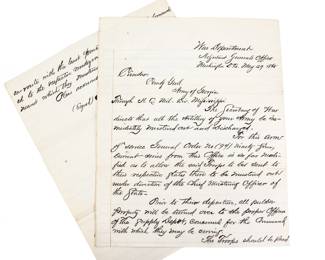 War Department
Adjutant Generals Office
Washington D.C. May 29 1865
Army of Georgia
Through
The Secretary of War
directs that all the Artillery of your Army be im-
mediately mustered out and discharged.
In this arm
of service General Order No (94) Ninety four,
current series from this Office is so far modi-
fied as to allow the said troops to be sent to
their respective States there to be mustered out
under direction of the Chief Mustering Officer of
the State.
Prior to their departure, all public
property will be turned over to the proper Officers
of the Supply Depots, for the
with which they may be serving.
The Troops should be paid
en route with the least
ed to the respective
which they